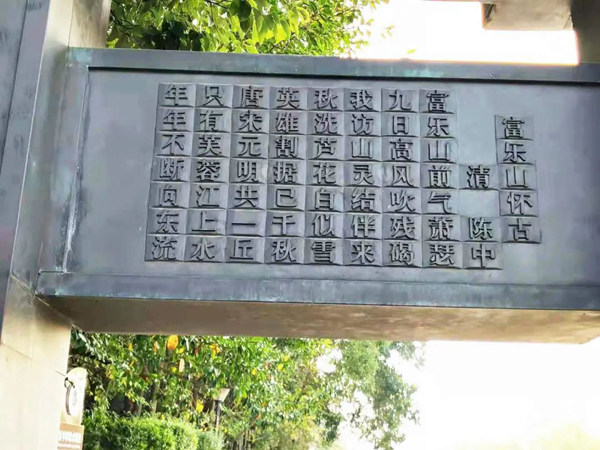 富乐山怀古
清 陈中
富乐山前气萧瑟
九日高风吹残碣
我访山灵结伴来
秋洗芦花白似雪
英雄割据巳千秋
唐宋元明共一丘
只有芙蓉江上水
年年不断向东流